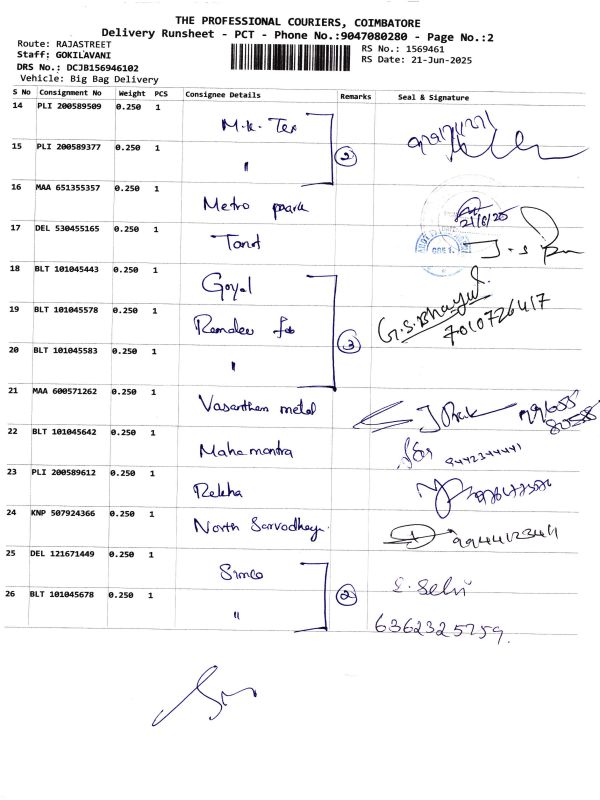 THE PROFESSIONAL COURIERS, COIMBATORE
Delivery Runsheet - PCT - Phone No.:9047080280 - Page No.:2
Route: RAJASTREET
Staff: GOKILAVANI
DRS No.: DCJB156946102
Vehicle: Big Bag Delivery
RS No.: 1569461
RS Date: 21-Jun-2025
S No Consignment No Weight PCS Consignee Details Remarks Seal & Signature
14 PLI 200589509 0.250 1 M.K. Tex
15 PLI 200589377 0.250 1 " 2
16 MAA 651355357 0.250 1 Metro 21/6/25
17 DEL 530455165 0.250 1
18 BLT 101045443 0.250 1 Goyal
19 BLT 101045578 0.250 1 Ramdev fab G.S.Bhayul 7010726417
20 BLT 101045583 0.250 1 " 3
21 MAA 600571262 0.250 1 Vasantham metal
22 BLT 101045642 0.250 1 Mahamantra 9442344441
23 PLI 200589612 0.250 1 Rekha
24 KNP 507924366 0.250 1 North Sarvodhaya
25 DEL 121671449 0.250 1 Simco S. Selvi
26 BLT 101045678 0.250 1 " 2 6362325759